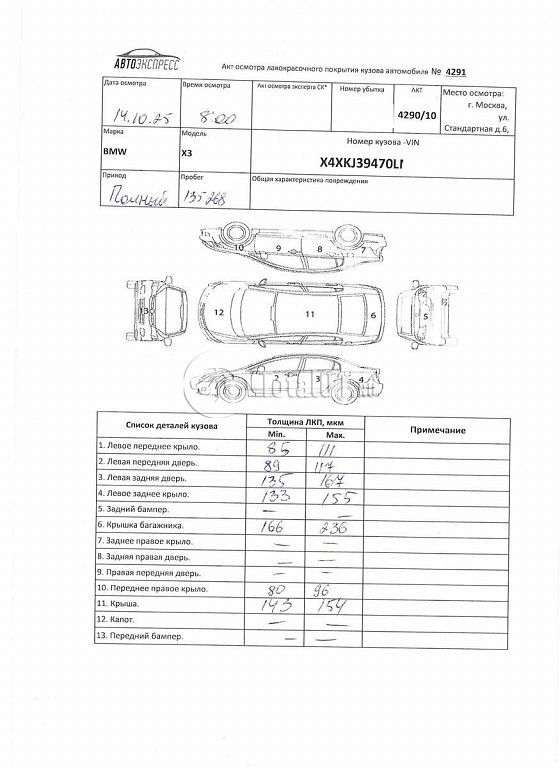 АВТОЭКСПРЕСС
Акт осмотра лакокрасочного покрытия кузова автомобиля № 4291
Дата осмотра
14.10.25
Время осмотра
8:00
Акт осмотра эксперта СК*
Номер убытка
АКТ
4290/10
Место осмотра:
г. Москва,
ул.
Стандартная д.6,
Марка
BMW
Модель
X3
Номер кузова -VIN
X4XKJ39470L
Привод
Полный
Пробег
135268
Общая характеристика повреждения
10 9 8 7
13 12 11 6 5
2 3 4
Total01
Список деталей кузова
Толщина ЛКП, мкм
Примечание
Min. Max.
1. Левое переднее крыло. 85 111
2. Левая передняя дверь. 89 117
3. Левая задняя дверь. 135 167
4. Левое заднее крыло. 133 155
5. Задний бампер. — —
6. Крышка багажника. 166 236
7. Заднее правое крыло. — —
8. Задняя правая дверь. — —
9. Правая передняя дверь. — —
10. Переднее правое крыло. 80 96
11. Крыша. 143 154
12. Капот. — —
13. Передний бампер. — —